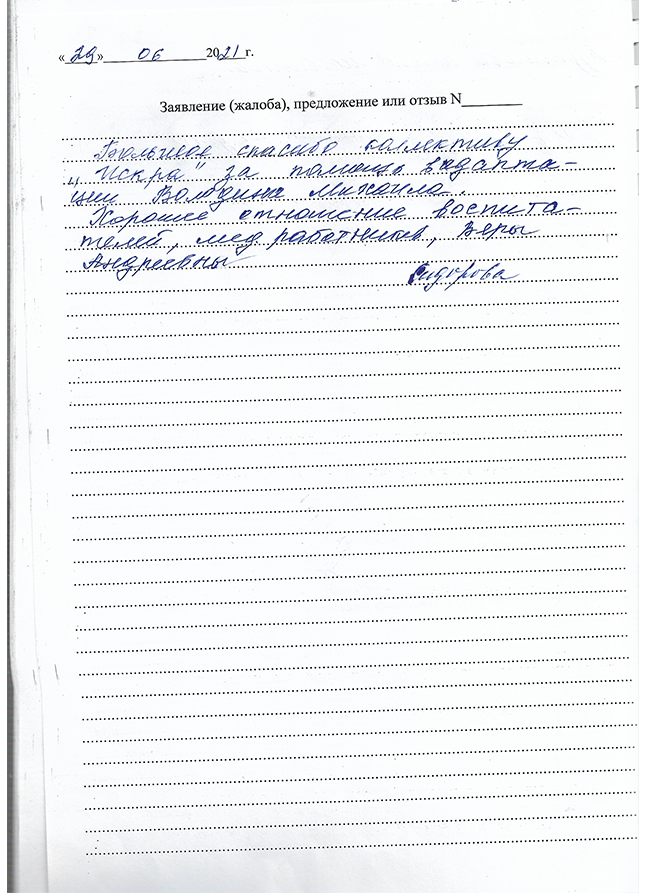 « 29 » 06 2021 г.
Заявление (жалоба), предложение или отзыв N
Большое спасибо коллективу
„Искра" за помощь в адапта-
ции Володина Михаила.
Хорошее отношение воспита-
телей, мед. работников, Веры
Андреевны
Сидорова